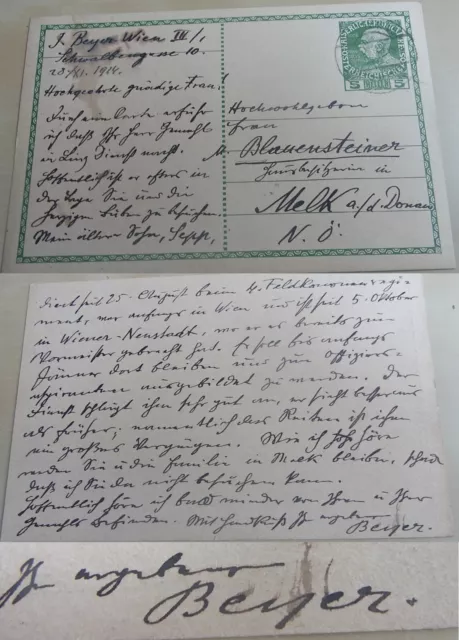 J. Beyer Wien IV/1
Schwalbengasse 10.
28/XI. 1914.
Hochgeehrte gnädige Frau!
Durch eine Karte erfuhr
ich daß Ihr Herr Gemahl
in Linz Dienst macht.
Hoffentlich ist er öfters in
der Lage Sie und die
herzigen Lieben zu besuchen.
Mein älterer Sohn, Seppl,
Hochwohlgeboren
Frau
M. Blauensteiner
Hausbesitzerin in
Melk a./d. Donau
N. Ö.
5 5
dient seit 25. August beim 4. Feldkanonenregi-
ment, war anfangs in Wien und ist seit 5. Oktober
in Wiener-Neustadt, wo er es bereits zum
Vormeister gebracht hat. Er soll bis anfangs
Jänner dort bleiben und zum Offiziers-
aspiranten ausgebildet zu werden. Der
Dienst schlägt ihm sehr gut an, er sieht besser aus
als früher; namentlich das Reiten ist ihm
ein großes Vergnügen. Wie ich höre
werden Sie u die Familie in Melk bleiben, schade
daß ich Sie da nicht besuchen kann.
Hoffentlich höre ich bald wieder von Ihnen u Ihres
Gemahls Befinden. Mit Handkuß Ihr ergebener
Beyer.
Ihr ergebener
Beyer.